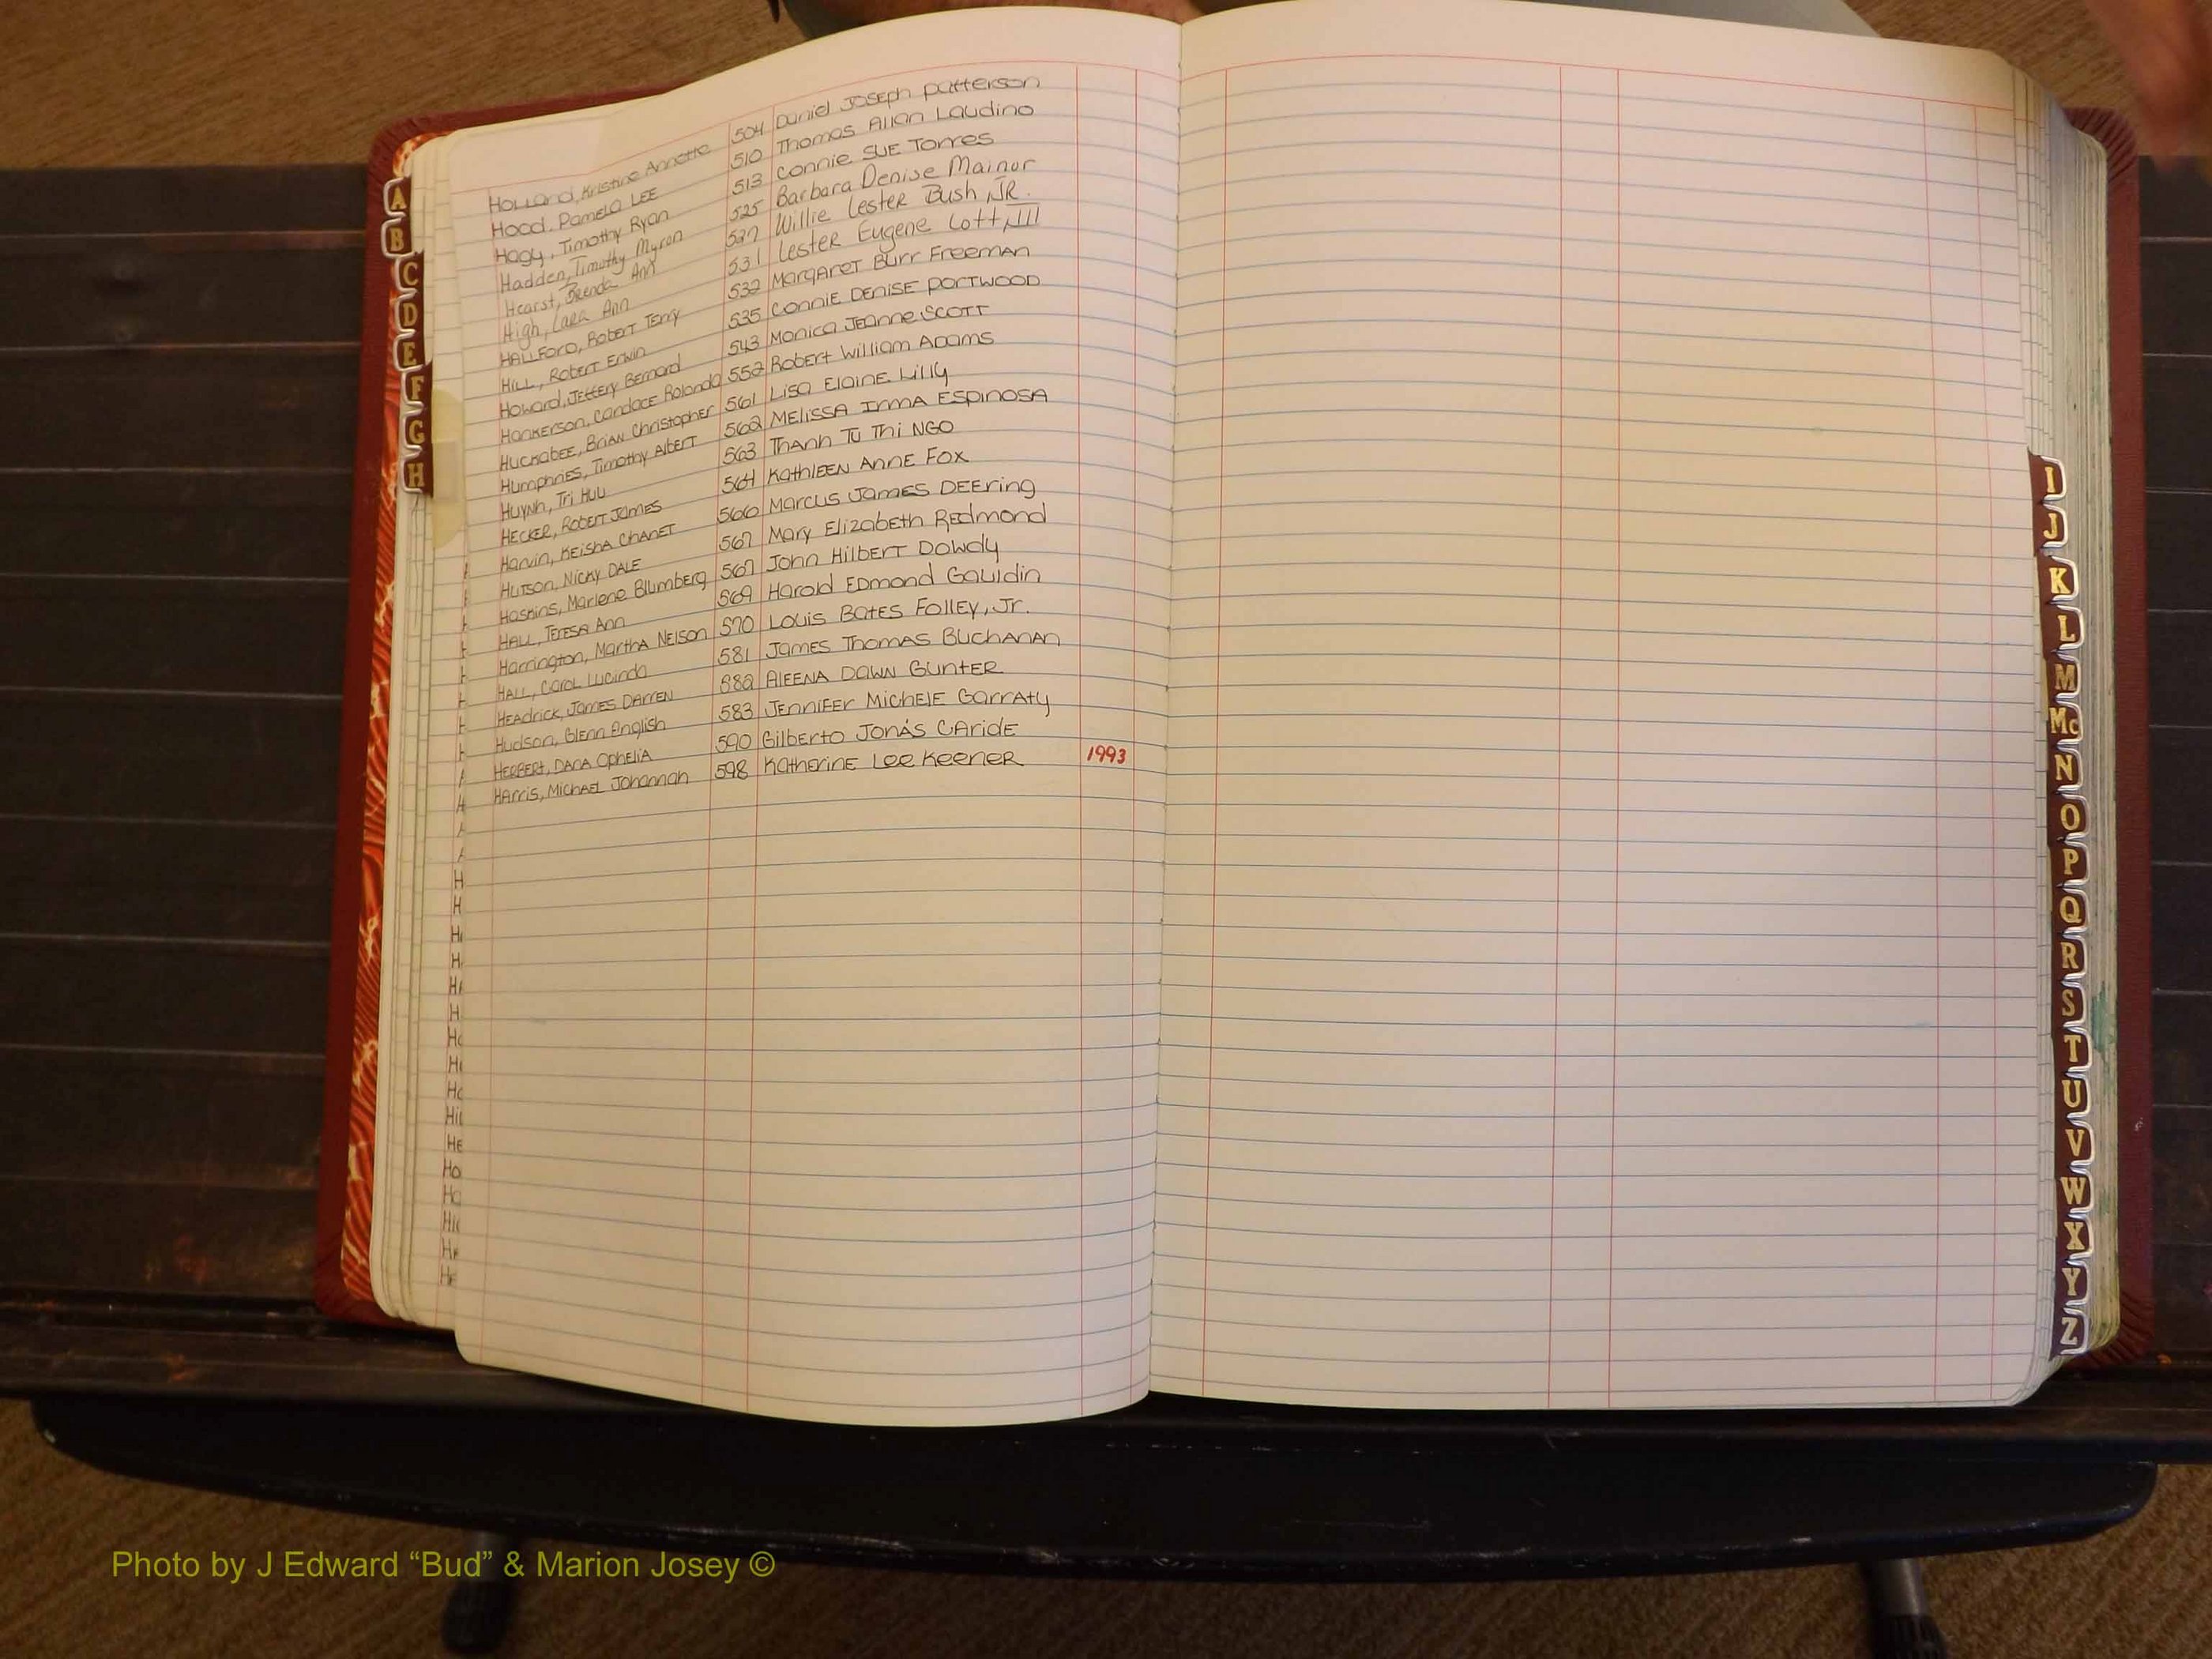 Holland, Kristine Annette 504 Daniel Joseph Patterson
Hood, Pamela LEE 510 Thomas Allan Laudino
Hagy, Timothy Ryan 513 Connie SUE Torres
Hadden, Timothy Myron 525 Barbara Denise Mainor
Hearst, Brenda Ann 527 Willie Lester Bush, JR.
High, Lara Ann 531 Lester Eugene Lott, III
HALLFORD, Robert Terry 532 Margaret Burr Freeman
HILL, Robert Erwin 535 Connie Denise Portwood
Howard, Jeffery Bernard 543 Monica Jeanne Scott
Hankerson, Candace Rolanda 552 Robert William Adams
Huckabee, Brian Christopher 561 Lisa Elaine Lilly
Humphries, Timothy Albert 562 Melissa Irma Espinosa
Huynh, Tri Huu 563 Thanh Tu Thi NGO
Hecker, Robert James 564 Kathleen Anne Fox
Harvin, Keisha Chanet 566 Marcus James Deering
Hutson, Nicky Dale 567 Mary Elizabeth Redmond
Hoskins, Marlene Blumberg 567 John Hilbert Dowdy
Hall, Teresa Ann 569 Harold Edmond Gauldin
Harrington, Martha Nelson 570 Louis Bates Folley, Jr.
Hall, Carol Lucinda 581 James Thomas Buchanan
Headrick, James Darren 582 Aleena Dawn Gunter
Hudson, Glenn English 583 Jennifer Michele Garraty
Herbert, Dana Ophelia 590 Gilberto Jonás Caride
Harris, Michael Johannah 598 Katherine Lee Keener 1993
A
B
C
D
E
F
G
H
I
J
K
L
M
Mc
N
O
P
Q
R
S
T
U
V
W
X
Y
Z
Photo by J Edward “Bud” & Marion Josey ©